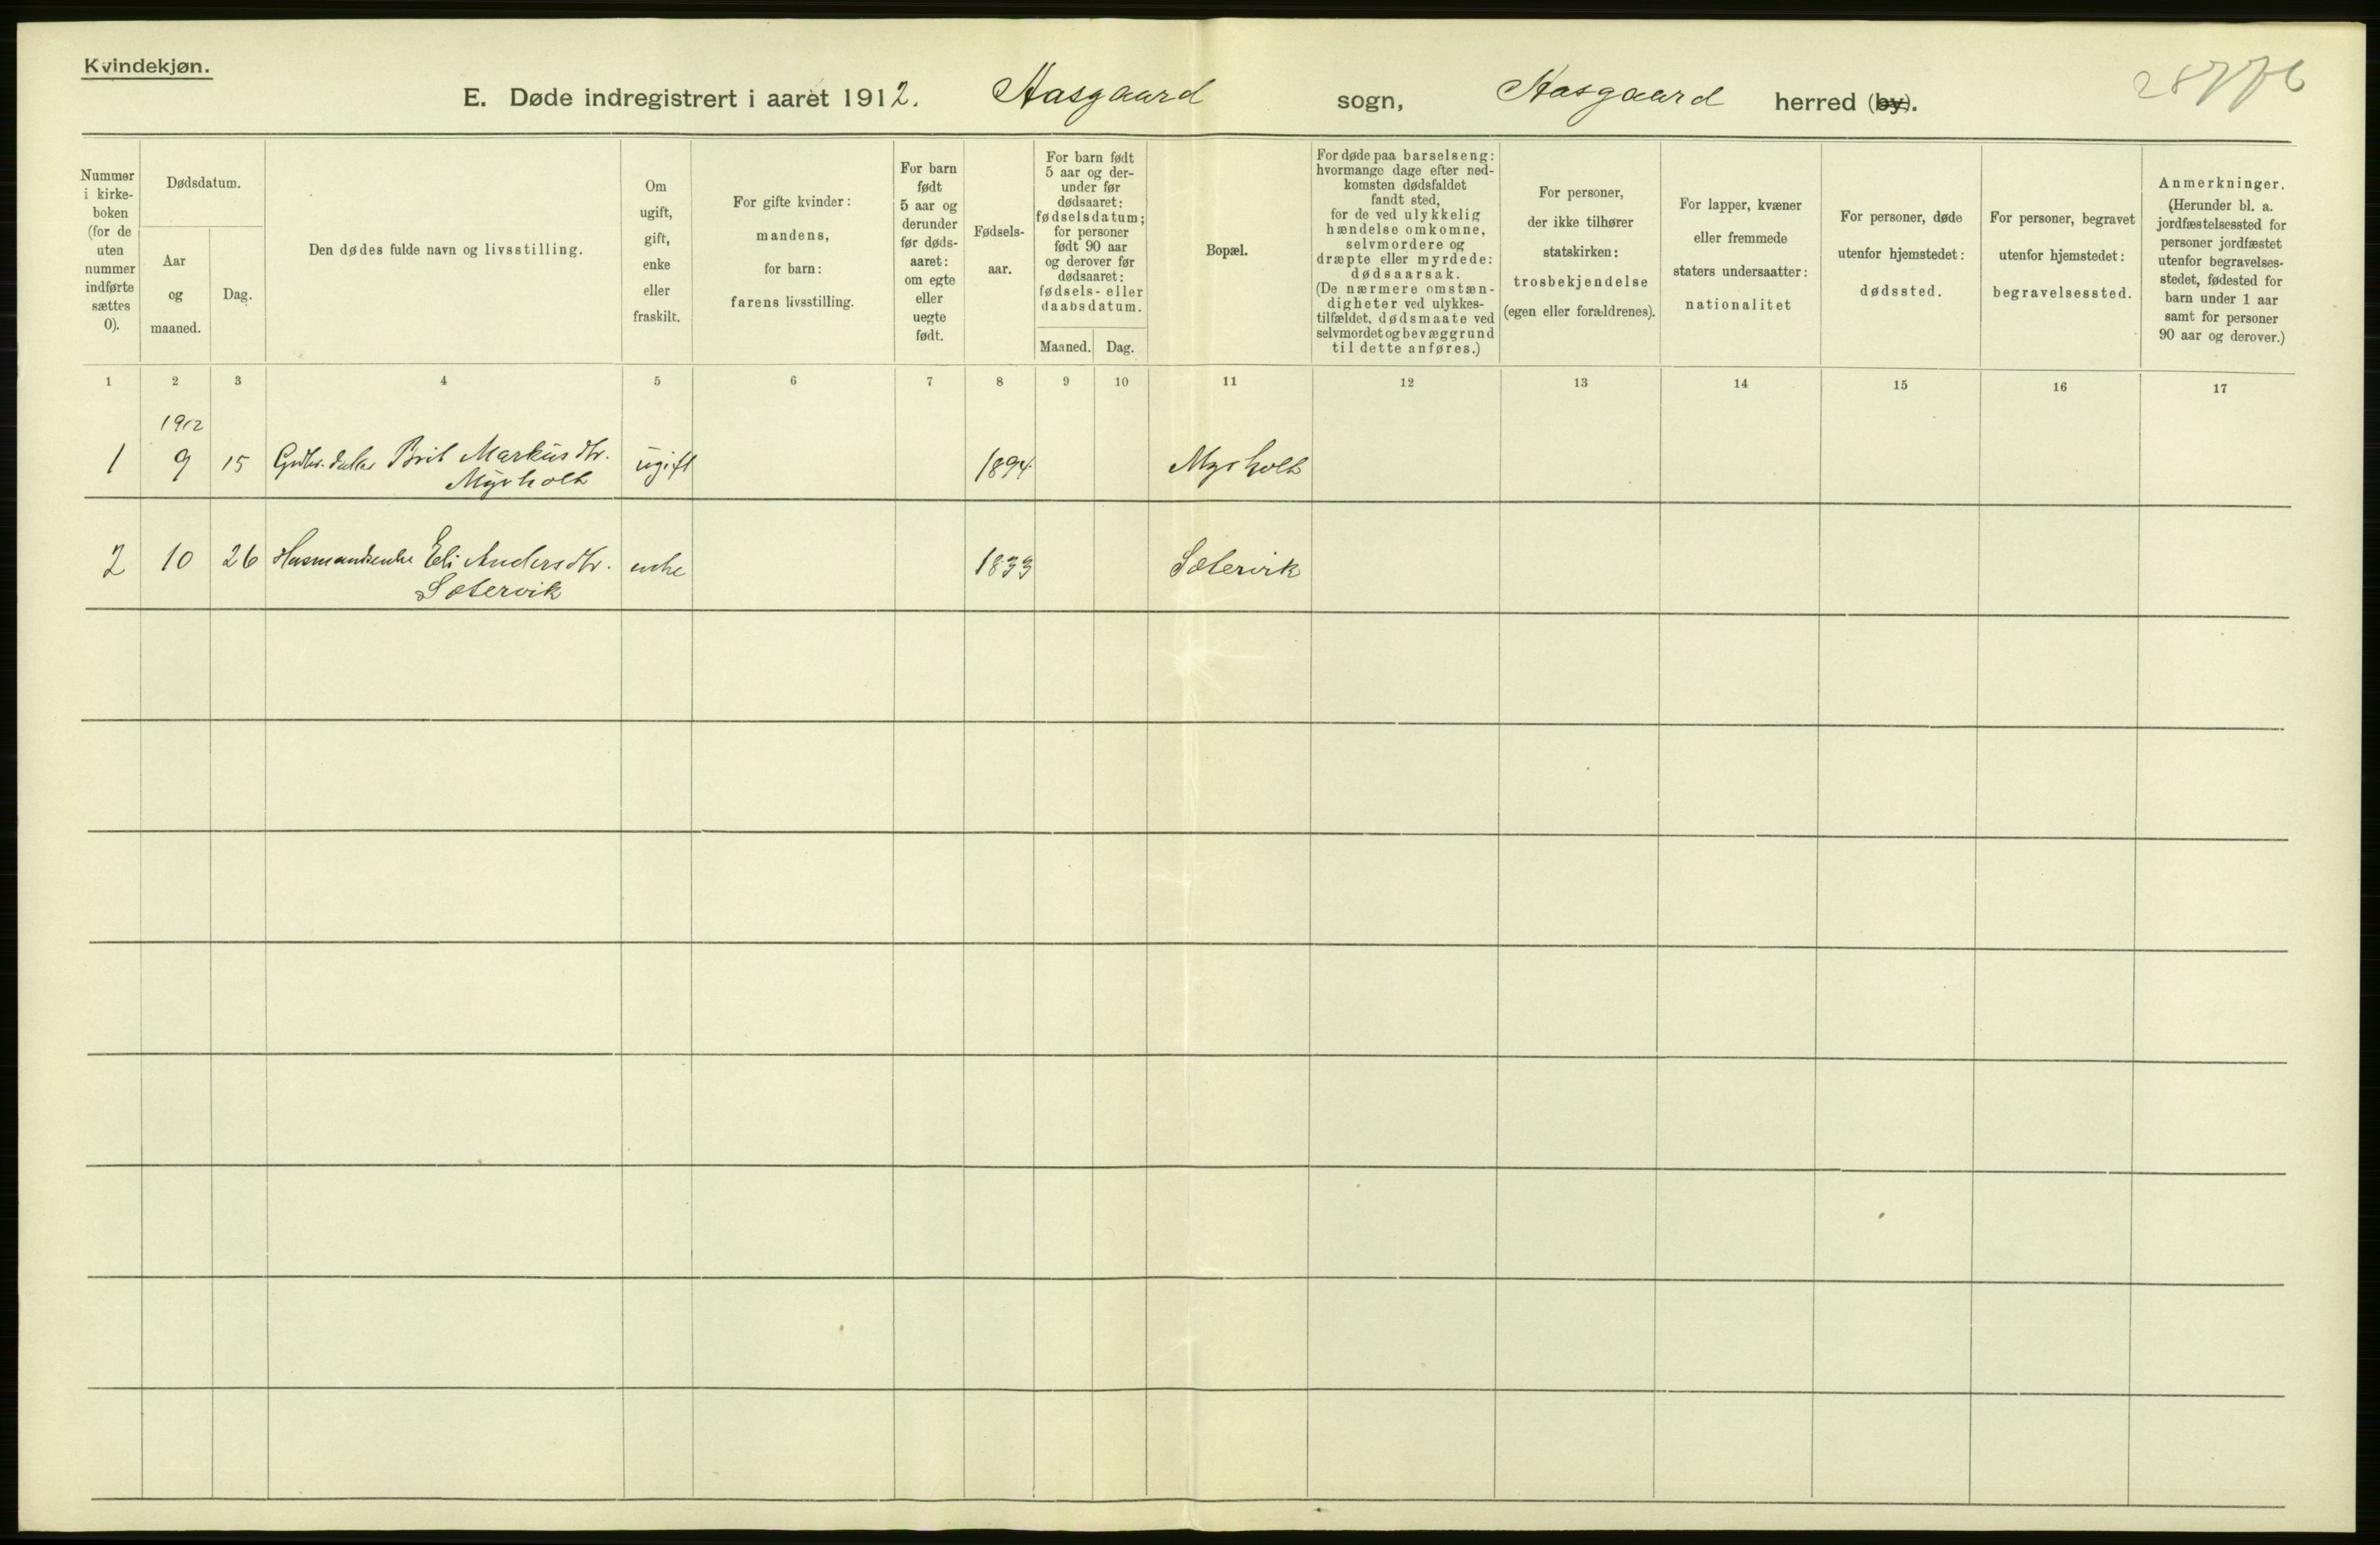 Kvindekjøn.
E. Døde indregistrert i aaret 1912. Aasgaard sogn, Aasgaard herred (by).
Nummer i kirke-boken (for de uten nummer indførte sættes 0).
Dødsdatum.
Aar og maaned.
Dag.
Den dødes fulde navn og livsstilling.
Om ugift, gift, enke eller fraskilt.
For gifte kvinder: mandens, for barn: farens livsstilling.
For barn født 5 aar og derunder før døds-aaret: om egte eller uegte født.
Fødsels-aar.
For barn født 5 aar og der-under før dødsaaret: fødselsdatum; for personer født 90 aar og derover før dødsaaret: fødsels- eller daabsdatum.
Maaned. Dag.
Bopæl.
For døde paa barselseng: hvormange dage efter ned-komsten dødsfaldet fandt sted, for de ved ulykkelig hændelse omkomne, selvmordere og dræpte eller myrdede: dødsaarsak. (De nærmere omstæn-digheter ved ulykkes-tilfældet, dødsmaate ved selvmordet og bevæggrund til dette anføres.)
For personer, der ikke tilhører statskirken: trosbekjendelse (egen eller forældrenes).
For lapper, kvæner eller fremmede staters undersaatter: nationalitet
For personer, døde utenfor hjemstedet: dødssted.
For personer, begravet utenfor hjemstedet: begravelsessted.
Anmerkninger. (Herunder bl. a. jordfæstelsessted for personer jordfæstet utenfor begravelses-stedet, fødested for barn under 1 aar samt for personer 90 aar og derover.)
1 2 3 4 5 6 7 8 9 10 11 12 13 14 15 16 17
1912
1 9 15 Brit Markusdtr. ugift 1894 Myrholt
Myrholt
2 10 26 Husmandsenke Eli Andersdtr. enke 1833 Sætervik
Sætervik